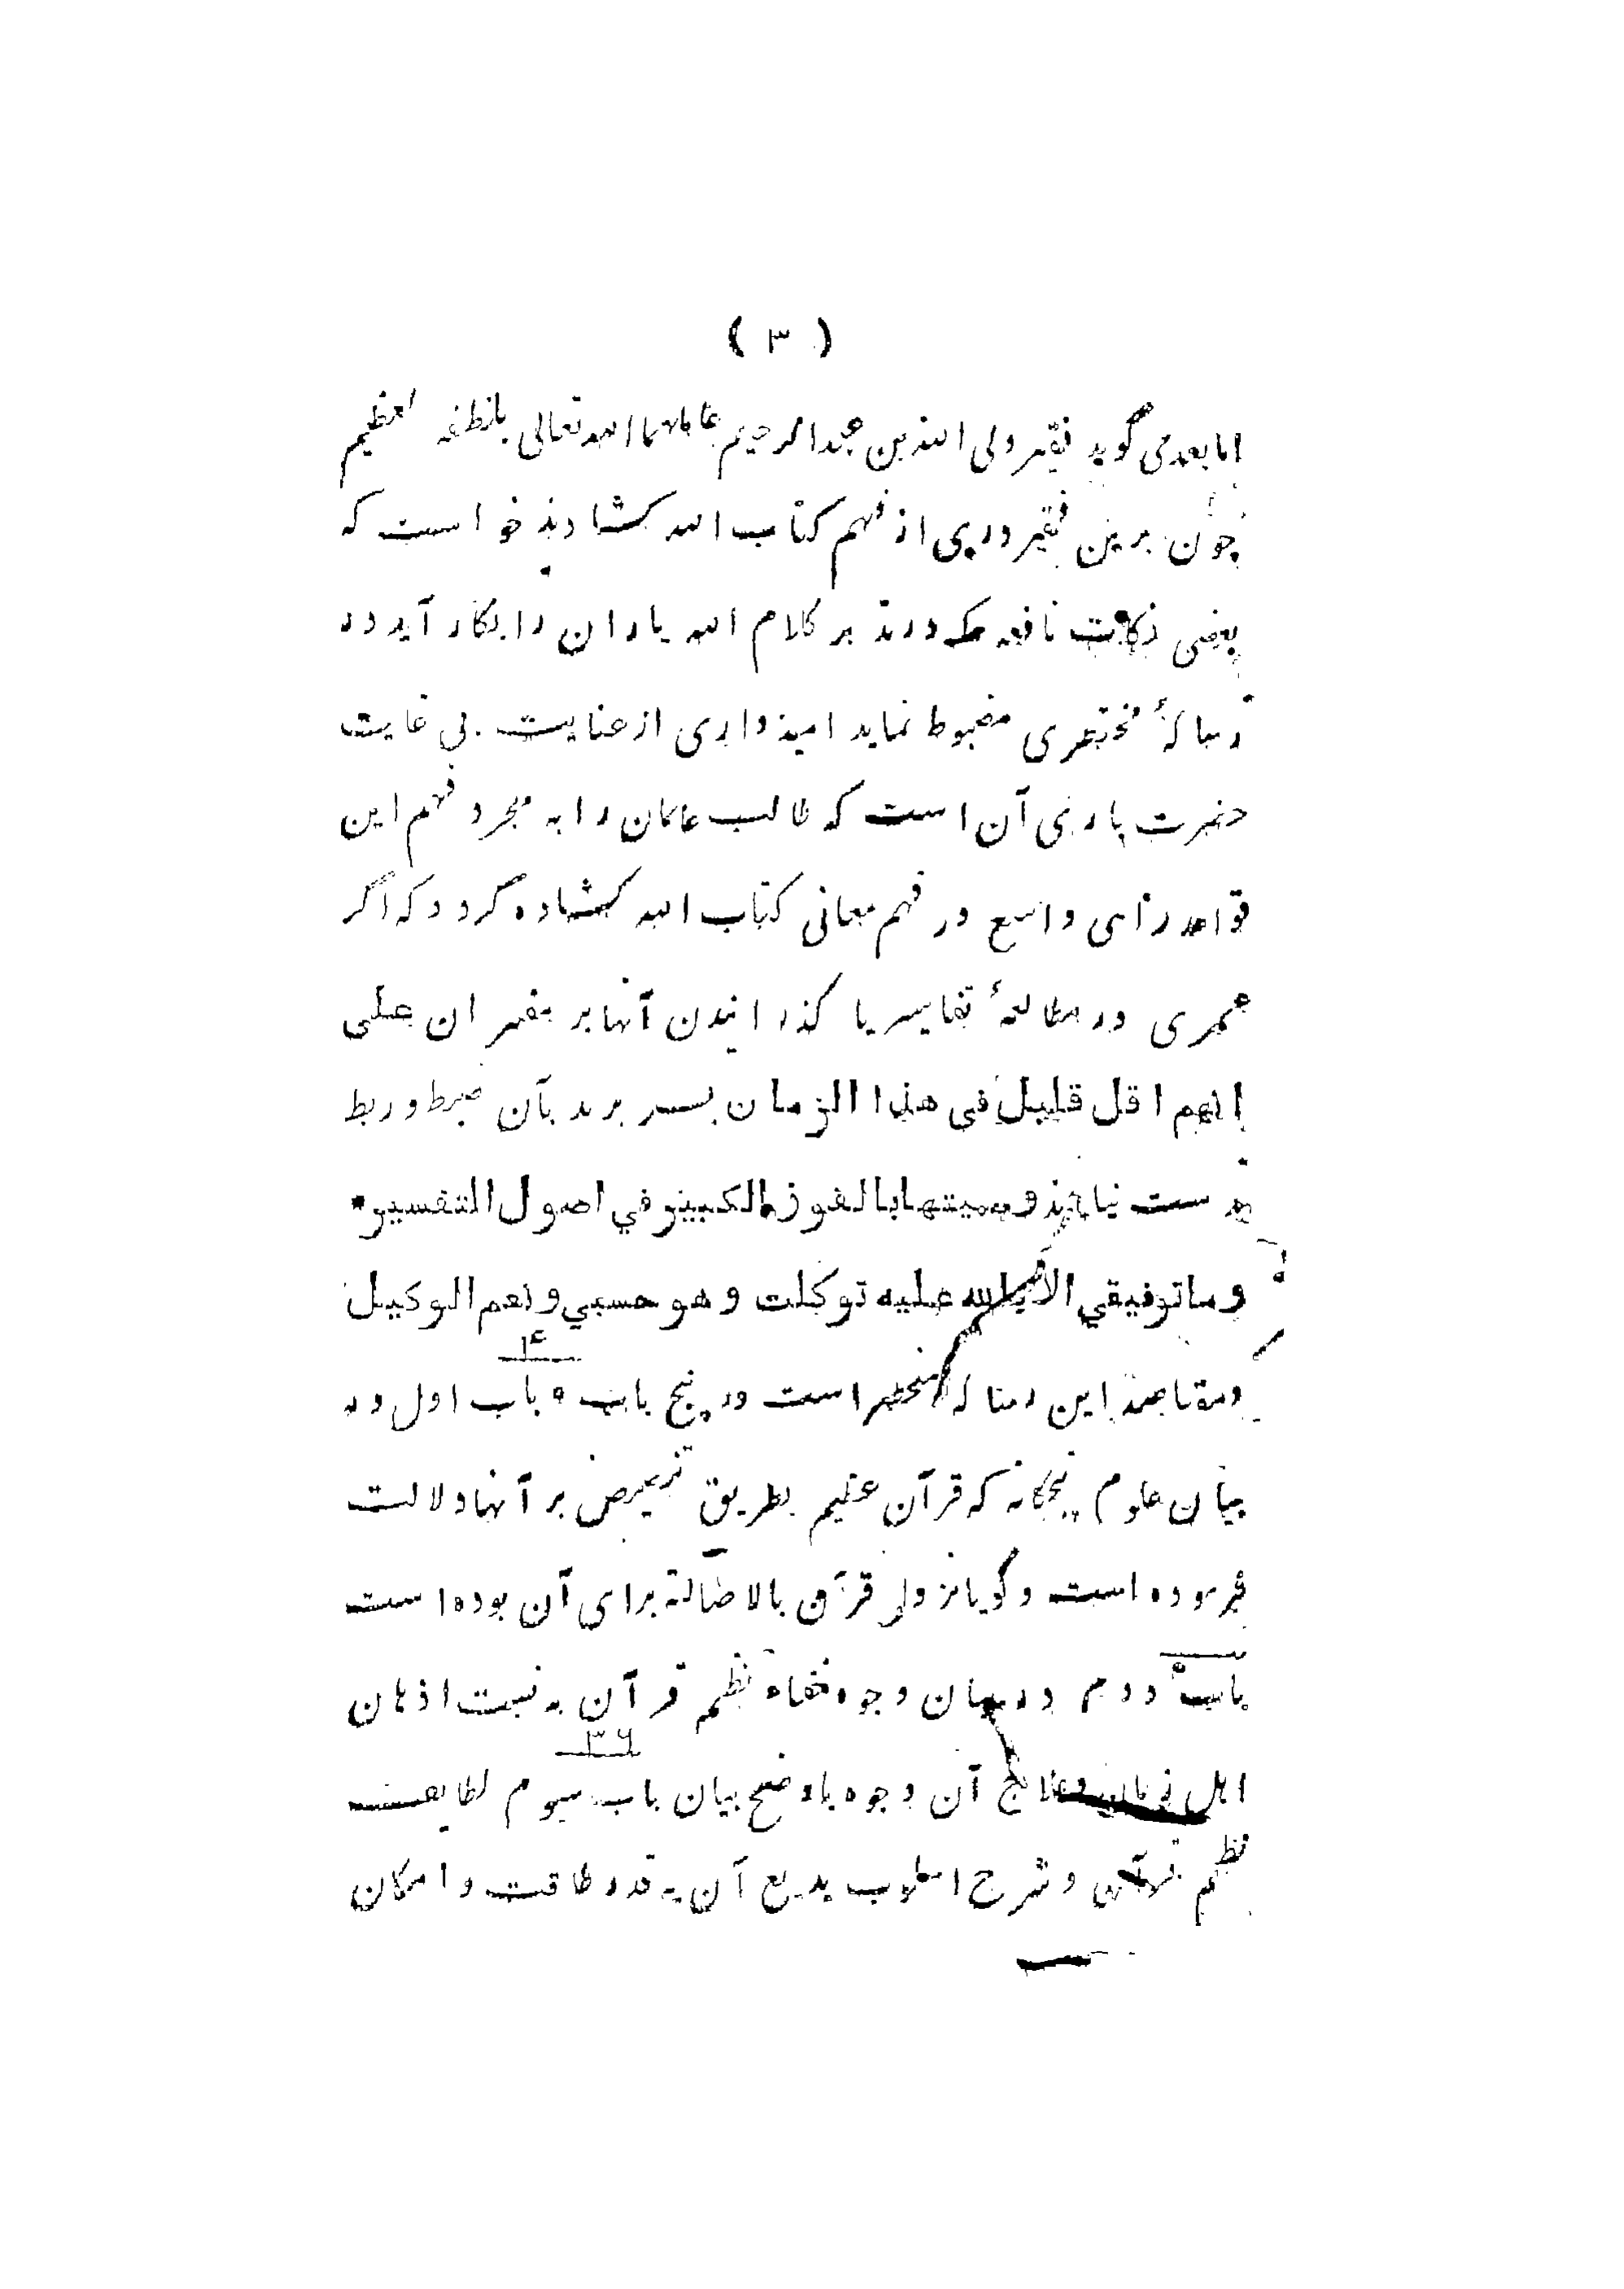 ( ٣ )
اما بعد می گوید فقیر ولی الله بن عبد الرحیم عاملهما الله تعالی بلطفه العظیم
چون برین فقیر دری از فهم کتاب الله کشادند خواست که
بعضی نکات نافعه که در تدبر کلام الله یاران را بکار آید در
رسالهٔ مختصری مضبوط نماید امیدواری از عنایت بی غایت
حضرت باری آن است که طالب علمان را به مجرد فهم این
قواعد راهی واسع در فهم معانی کتاب الله کشاده گردد که اگر
عمری در مطالعهٔ تفاسیر یا گذرانیدن آنها بر مفسران علی
انهم اقل قلیل فی هذا الزمان بسر برند بآن ضبط و ربط
بدست نیارند وسمیتها بالفوز الکبیر في اصول التفسیر •
وما توفیقي الا بالله علیه توکلت وهو حسبي ونعم الوکیل
و مقاصد این رساله منحصر است در پنج باب ° باب اول در
بیان علوم پنجگانه که قرآن عظیم بطریق تنصیص بر آنها دلالت
فرموده است و گویا نزول قرآن بالاصالة برای آن بوده است
باب دوم در بیان وجوه خفاء نظم قرآن به نسبت اذهان
٣٦
اهل زمان و علاج آن وجوه باوضح بیان باب سیوم لطایف
نظم قرآن و شرح اسلوب بدیع آن به قدر طاقت و امکان